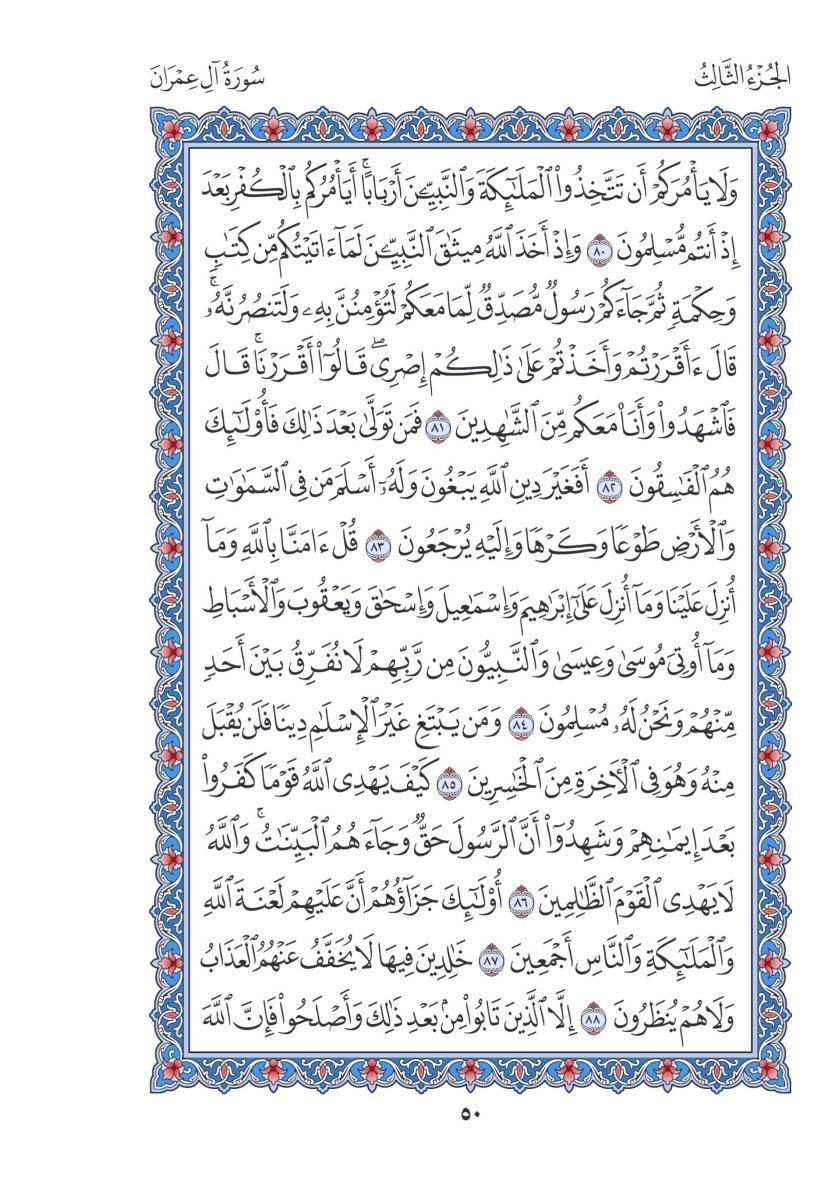 الجُزْءُ الثَّالِثُ
سُورَةُ آلِ عِمْرَانَ
وَلَا يَأْمُرَكُمْ أَن تَتَّخِذُوا۟ ٱلْمَلَٰٓئِكَةَ وَٱلنَّبِيِّـۧنَ أَرْبَابًا ۗ أَيَأْمُرُكُم بِٱلْكُفْرِ بَعْدَ
إِذْ أَنتُم مُّسْلِمُونَ ٨٠ وَإِذْ أَخَذَ ٱللَّهُ مِيثَٰقَ ٱلنَّبِيِّـۧنَ لَمَآ ءَاتَيْتُكُم مِّن كِتَٰبٍ
وَحِكْمَةٍ ثُمَّ جَآءَكُمْ رَسُولٌ مُّصَدِّقٌ لِّمَا مَعَكُمْ لَتُؤْمِنُنَّ بِهِۦ وَلَتَنصُرُنَّهُۥ ۚ
قَالَ ءَأَقْرَرْتُمْ وَأَخَذْتُمْ عَلَىٰ ذَٰلِكُمْ إِصْرِى ۖ قَالُوٓا۟ أَقْرَرْنَا ۚ قَالَ
فَٱشْهَدُوا۟ وَأَنَا۠ مَعَكُم مِّنَ ٱلشَّٰهِدِينَ ٨١ فَمَن تَوَلَّىٰ بَعْدَ ذَٰلِكَ فَأُو۟لَٰٓئِكَ
هُمُ ٱلْفَٰسِقُونَ ٨٢ أَفَغَيْرَ دِينِ ٱللَّهِ يَبْغُونَ وَلَهُۥٓ أَسْلَمَ مَن فِى ٱلسَّمَٰوَٰتِ
وَٱلْأَرْضِ طَوْعًا وَكَرْهًا وَإِلَيْهِ يُرْجَعُونَ ٨٣ قُلْ ءَامَنَّا بِٱللَّهِ وَمَآ
أُنزِلَ عَلَيْنَا وَمَآ أُنزِلَ عَلَىٰٓ إِبْرَٰهِيمَ وَإِسْمَٰعِيلَ وَإِسْحَٰقَ وَيَعْقُوبَ وَٱلْأَسْبَاطِ
وَمَآ أُوتِىَ مُوسَىٰ وَعِيسَىٰ وَٱلنَّبِيُّونَ مِن رَّبِّهِمْ لَا نُفَرِّقُ بَيْنَ أَحَدٍ
مِّنْهُمْ وَنَحْنُ لَهُۥ مُسْلِمُونَ ٨٤ وَمَن يَبْتَغِ غَيْرَ ٱلْإِسْلَٰمِ دِينًا فَلَن يُقْبَلَ
مِنْهُ وَهُوَ فِى ٱلْءَاخِرَةِ مِنَ ٱلْخَٰسِرِينَ ٨٥ كَيْفَ يَهْدِى ٱللَّهُ قَوْمًا كَفَرُوا۟
بَعْدَ إِيمَٰنِهِمْ وَشَهِدُوٓا۟ أَنَّ ٱلرَّسُولَ حَقٌّ وَجَآءَهُمُ ٱلْبَيِّنَٰتُ ۚ وَٱللَّهُ
لَا يَهْدِى ٱلْقَوْمَ ٱلظَّٰلِمِينَ ٨٦ أُو۟لَٰٓئِكَ جَزَآؤُهُمْ أَنَّ عَلَيْهِمْ لَعْنَةَ ٱللَّهِ
وَٱلْمَلَٰٓئِكَةِ وَٱلنَّاسِ أَجْمَعِينَ ٨٧ خَٰلِدِينَ فِيهَا لَا يُخَفَّفُ عَنْهُمُ ٱلْعَذَابُ
وَلَا هُمْ يُنظَرُونَ ٨٨ إِلَّا ٱلَّذِينَ تَابُوا۟ مِنۢ بَعْدِ ذَٰلِكَ وَأَصْلَحُوا۟ فَإِنَّ ٱللَّهَ
٥٠